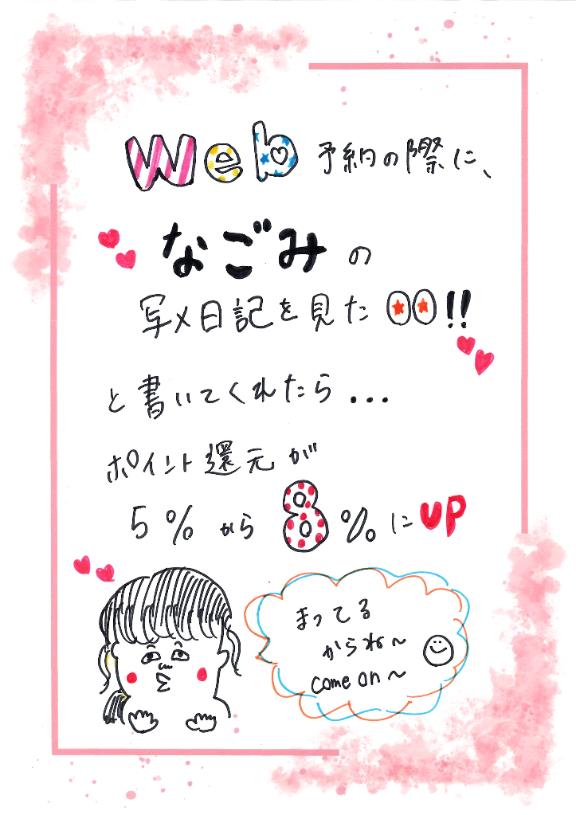 Web 予約の際に、
なごみの
写メ日記を見た!!
と書いてくれたら...
ポイント還元が
5%から8%にUP
まってる
からね〜
come on 〜